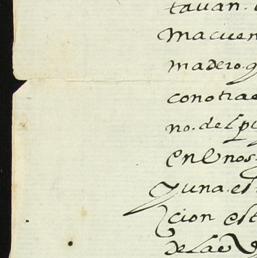 tauan.
macuen
madero. q
conotrae
no. del p
en enos
y una. es
cion est
de la e